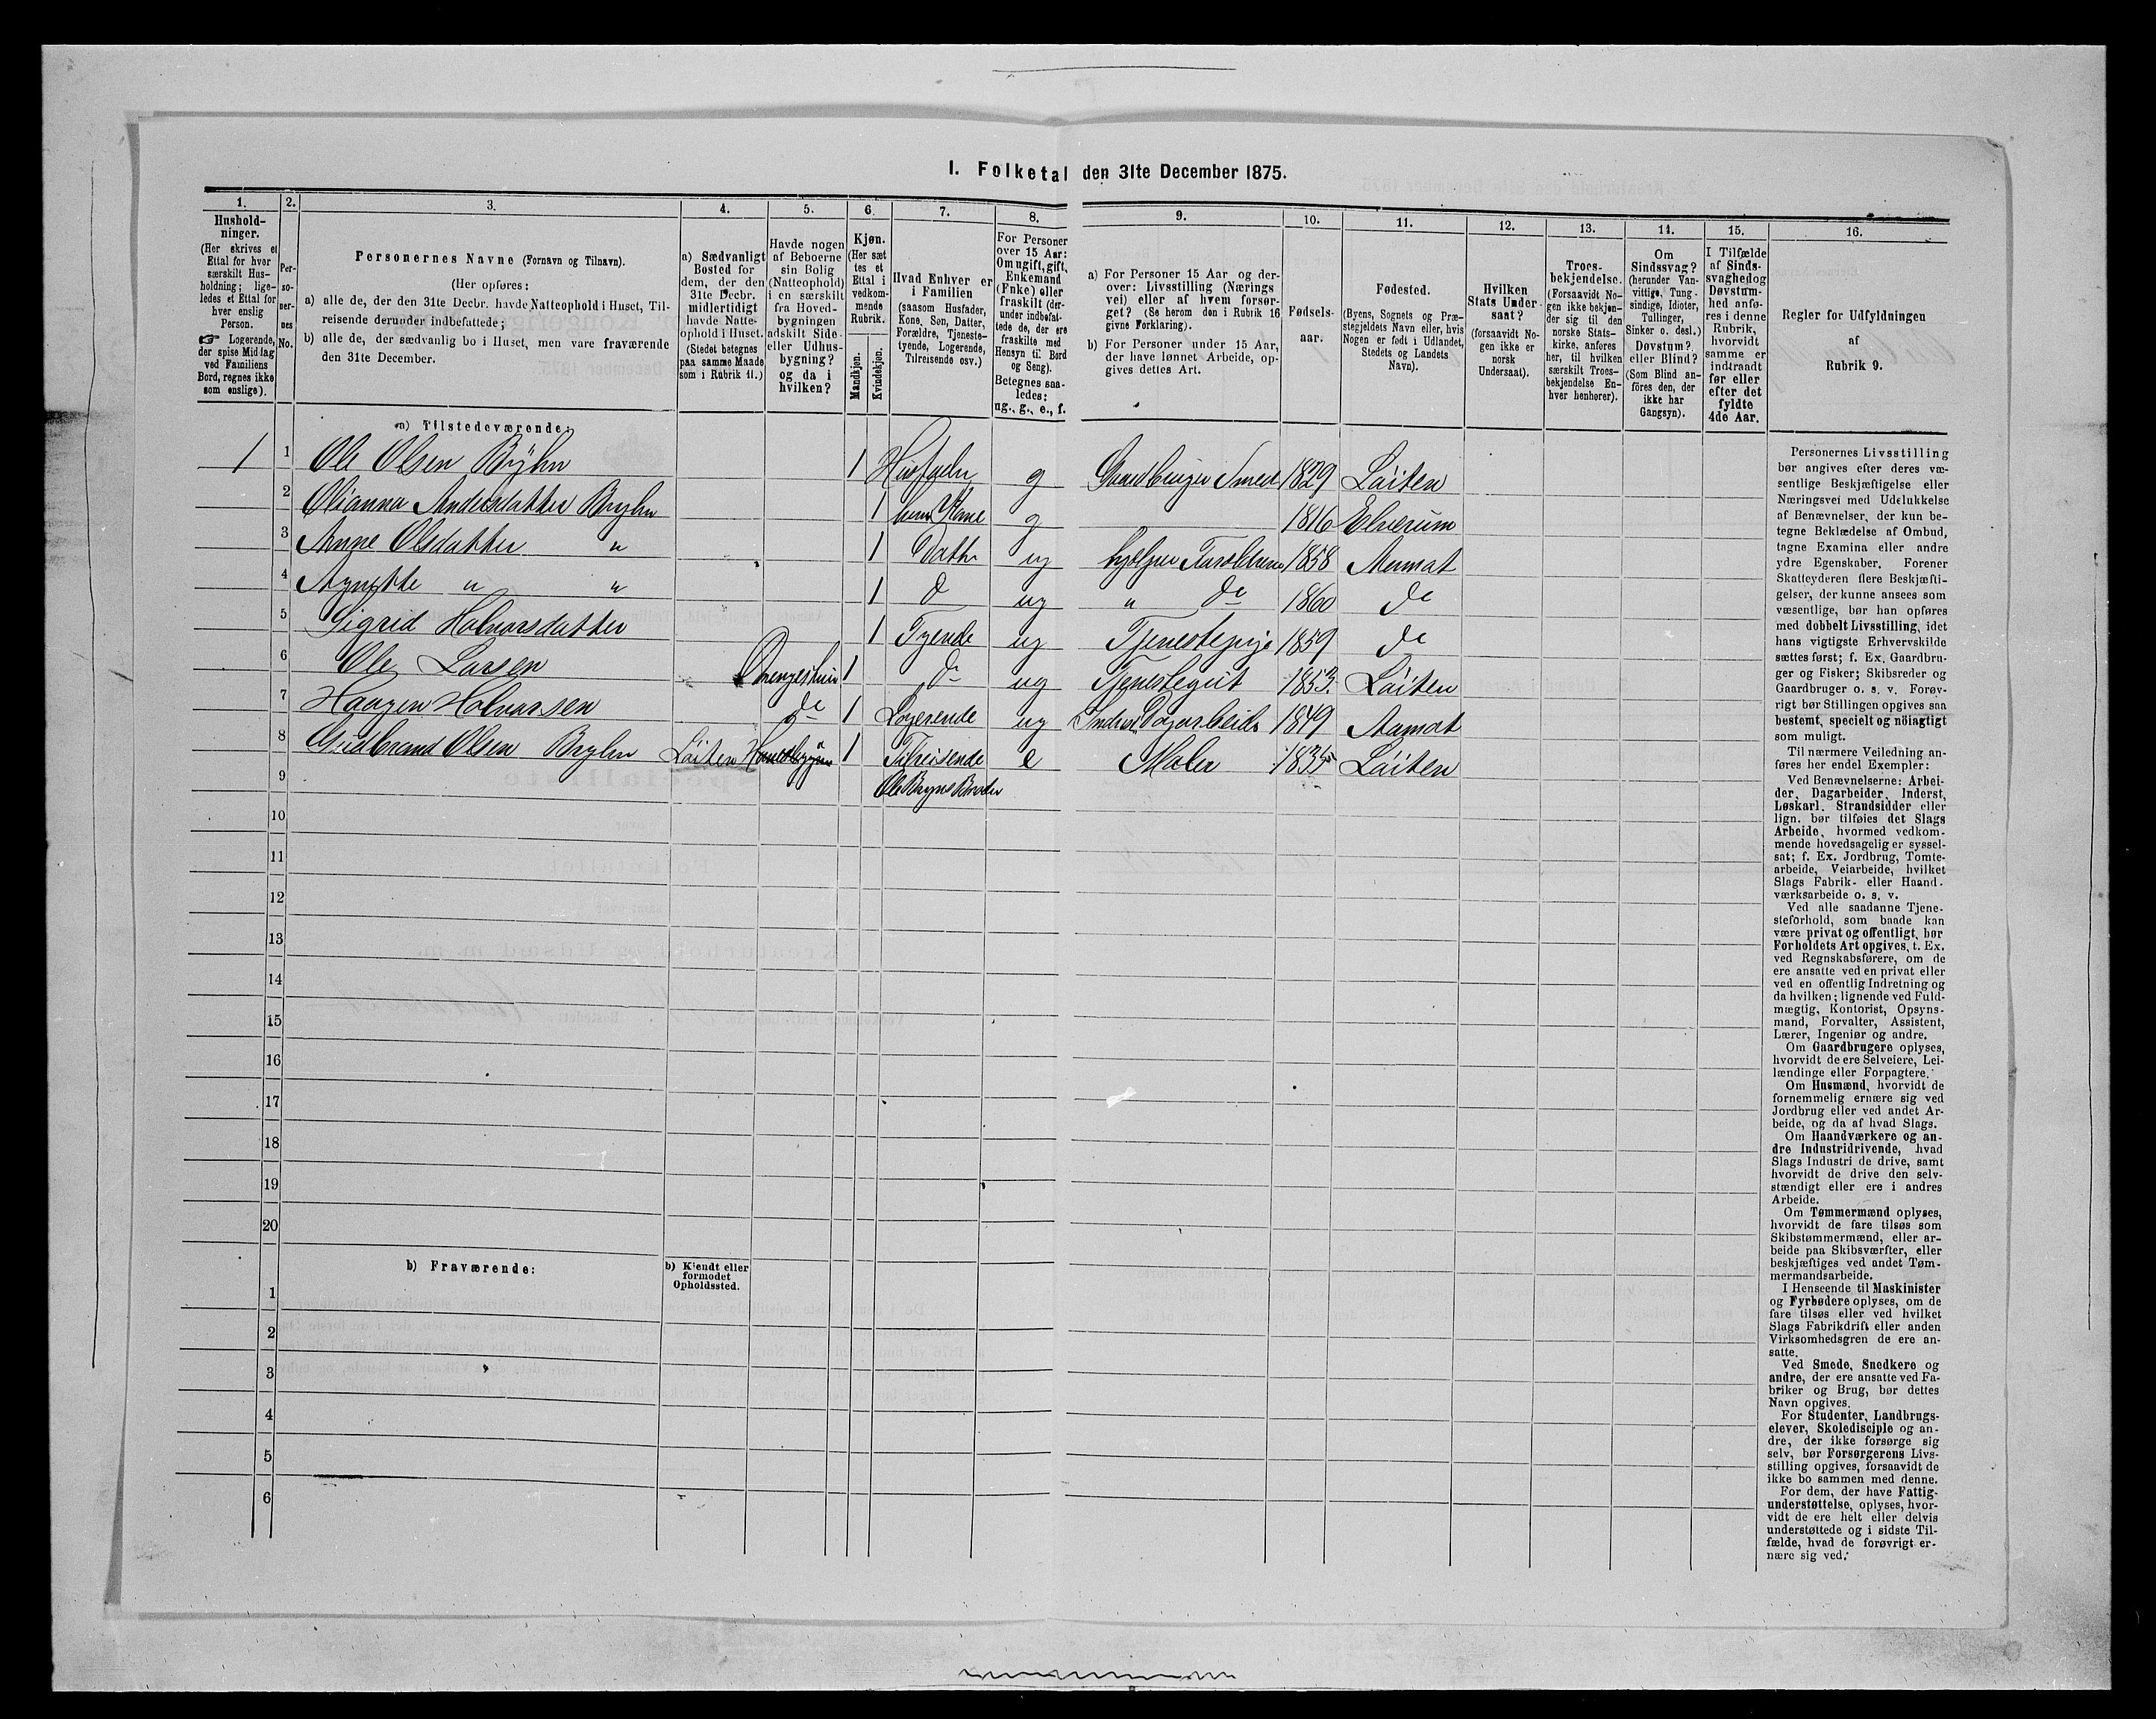 I. Folketal den 31te December 1875.
1.
Hushold-
ninger.
(Her skrives et
Ettal for hver
særskilt Hus-
holdning; lige-
ledes et Ettal for
hver enslig
Person.
☞ Logerende,
der spise Middag
ved Familiens
Bord, regnes ikke
som enslige).
2.
Per-
so-
ner-
nes
No.
3.
Personernes Navne (Fornavn og Tilnavn).
(Her opføres:
a) alle de, der den 31te Decbr. havde Natteophold i Huset, Til-
reisende derunder indbefattede;
b) alle de, der sædvanlig bo i Huset, men vare fraværende
den 31te December.
4.
a) Sædvanligt
Bosted for
dem, der den
31te Decbr.
midlertidigt
havde Natte-
ophold i Huset.
(Stedet betegnes
paa samme Maade
som i Rubrik 11.)
5.
Havde nogen
af Beboerne
sin Bolig
(Natteophold)
i en særskilt
fra Hoved-
bygningen
adskilt Side
eller Udhus-
bygning?
og da i
hvilken?
6.
Kjøn.
(Her sæt
tes et
Ettal i
vedkom-
mende
Rubrik.
Mandkjøn.
Kvindekjøn.
7.
Hvad Enhver er
i Familien
(saasom Husfader,
Kone, Søn, Datter,
Forældre, Tjeneste-
tyende, Logerende,
Tilreisende osv.)
8.
For Personer
over 15 Aar:
Om ugift, gift,
Enkemand
(Fnke) eller
fraskilt (der-
under indbefat-
tede de, der ere
fraskilte med
Hensyn til Bord
og Seng).
Betegnes saa-
ledes:
ug., g., e., f.
9.
a) For Personer 15 Aar og der-
over: Livsstilling (Nærings
vei) eller af hvem forsør-
get? (Se herom den i Rubrik 16
givne Forklaring).
b) For Personer under 15 Aar,
der have lønnet Arbeide, op-
gives dettes Art.
10.
Fødsels-
aar.
11.
Fødested.
(Byens, Sognets og Præ-
stegjeldets Navn eller, hvis
Nogen er født i Udlandet,
Stedets og Landets
Navn).
12.
Hvilken
Stats Under-
saat?
(forsaavidt No-
gen ikke er
norsk
Undersaat).
13.
Troes-
bekjendelse.
(Forsaavidt No-
gen ikke bekjen-
der sig til den
norske Stats-
kirke, anføres
her, til hvilken
særskilt Troes-
bekjendelse En-
hver henhører).
14.
Om
Sindssvag?
(herunder Van-
vittige, Tung-
sindige, Idioter,
Tullinger,
Sinker o. desl.)
Døvstum?
eller Blind?
(Som Blind an-
føres den, der
ikke har
Gangsyn).
15.
I Tilfælde
af Sinds-
svaghed og
Døvstum-
hed anfø-
res i denne
Rubrik,
hvorvidt
samme er
indtraadt
før eller
efter det
fyldte
4de Aar.
16.
Regler for Udfyldningen
af
Rubrik 9.
a) Tilstedeværende:
1 1 Ole Olsen Bryhn 1 Husfader g Gaardbruger Smed 1829 Løiten
2 Olianna Andersdatter Bryhn 1 hans Kone g 1816 Elverum
3 Anne Olsdatter " 1 Datter ug hjelper Forældrene 1858 Aamot
4 Agnethe " " 1 d ug " do 1860 do
5 Sigrid Halvorsdatter 1 Tyende ug Tjenestepige 1859 do
6 Ole Larsen Drengestuen 1 do ug Tjenestegut 1853 Løiten
7 Haagen Halvorsen do 1 Logerende ug Inderst Dagarbeider 1849 Aamot
8 Gudbrand Olsen Bryhn Løiten 1 Tilreisende e Maler 1835 Løiten
9 Ole Bryns Broder
10
11
12
13
14
15
16
17
18
19
20
b) Fraværende: b) Kjendt eller
formodet
Opholdssted.
1
2
3
4
5
6
Personernes Livsstilling
bør angives efter deres væ-
sentlige Beskjæftigelse eller
Næringsvei med Udelukkelse
af Benævnelser, der kun be-
tegne Beklædelse af Ombud,
tagne Examina eller andre
ydre Egenskaber. Forener
Skatteyderen flere Beskjæfti-
gelser, der kunne ansees som
væsentlige, bør han opføres
med dobbelt Livsstilling, idet
hans vigtigste Erhvervskilde
sættes først; f. Ex. Gaardbru-
ger og Fisker; Skibsreder og
Gaardbruger o. s. v. Forøv-
rigt bør Stillingen opgives saa
bestemt, specielt og nøiagtigt
som muligt.
Til nærmere Veiledning an-
føres her endel Exempler:
Ved Benævnelserne: Arbei-
der, Dagarbeider, Inderst,
Løskarl, Strandsidder eller
lign. bør tilføies det Slags
Arbeide, hvormed vedkom-
mende hovedsagelig er syssel-
sat; f. Ex. Jordbrug, Tomte-
arbeide, Veiarbeide, hvilket
Slags Fabrik- eller Haand-
værksarbeide o. s. v.
Ved alle saadanne Tjene-
steforhold, som baade kan
være privat og offentligt, bør
Forholdets Art opgives, t. Ex.
ved Regnskabsførere, om de
ere ansatte ved en privat eller
ved en offentlig Indretning og
da hvilken; lignende ved Fuld-
mægtig, Kontorist, Opsyns-
mand, Forvalter, Assistent,
Lærer, Ingeniør og andre.
Om Gaardbrugere oplyses,
hvorvidt de ere Selveiere, Lei-
lændinge eller Forpagtere.
Om Husmænd, hvorvidt de
fornemmelig ernære sig ved
Jordbrug eller ved andet Ar-
beide, og da af hvad Slags.
Om Haandværkere og an-
dre Industridrivende, hvad
Slags Industri de drive, samt
hvorvidt de drive den selv-
stændigt eller ere i andres
Arbeide.
Om Tømmermænd oplyses,
hvorvidt de fare tilsøs som
Skibstømmermænd, eller ar-
beide paa Skibsværfter, eller
beskjæftiges ved andet Tøm-
mermandsarbeide.
I Henseende til Maskinister
og Fyrbødere oplyses, om de
fare tilsøs eller ved hvilket
Slags Fabrikdrift eller anden
Virksomhedsgren de ere an-
satte.
Ved Smede, Snedkere og
andre, der ere ansatte ved Fa-
briker og Brug, bør dettes
Navn opgives.
For Studenter, Landbrugs-
elever, Skoledisciple og an-
dre, der ikke forsørge sig
selv, bør Forsørgerens Livs-
stilling opgives, forsaavidt de
ikke bo sammen med denne.
For dem, der have Fattig-
understøttelse, oplyses, hvor-
vidt de ere helt eller delvis
understøttede og i sidste Til-
fælde, hvad de forøvrigt er-
nære sig ved.